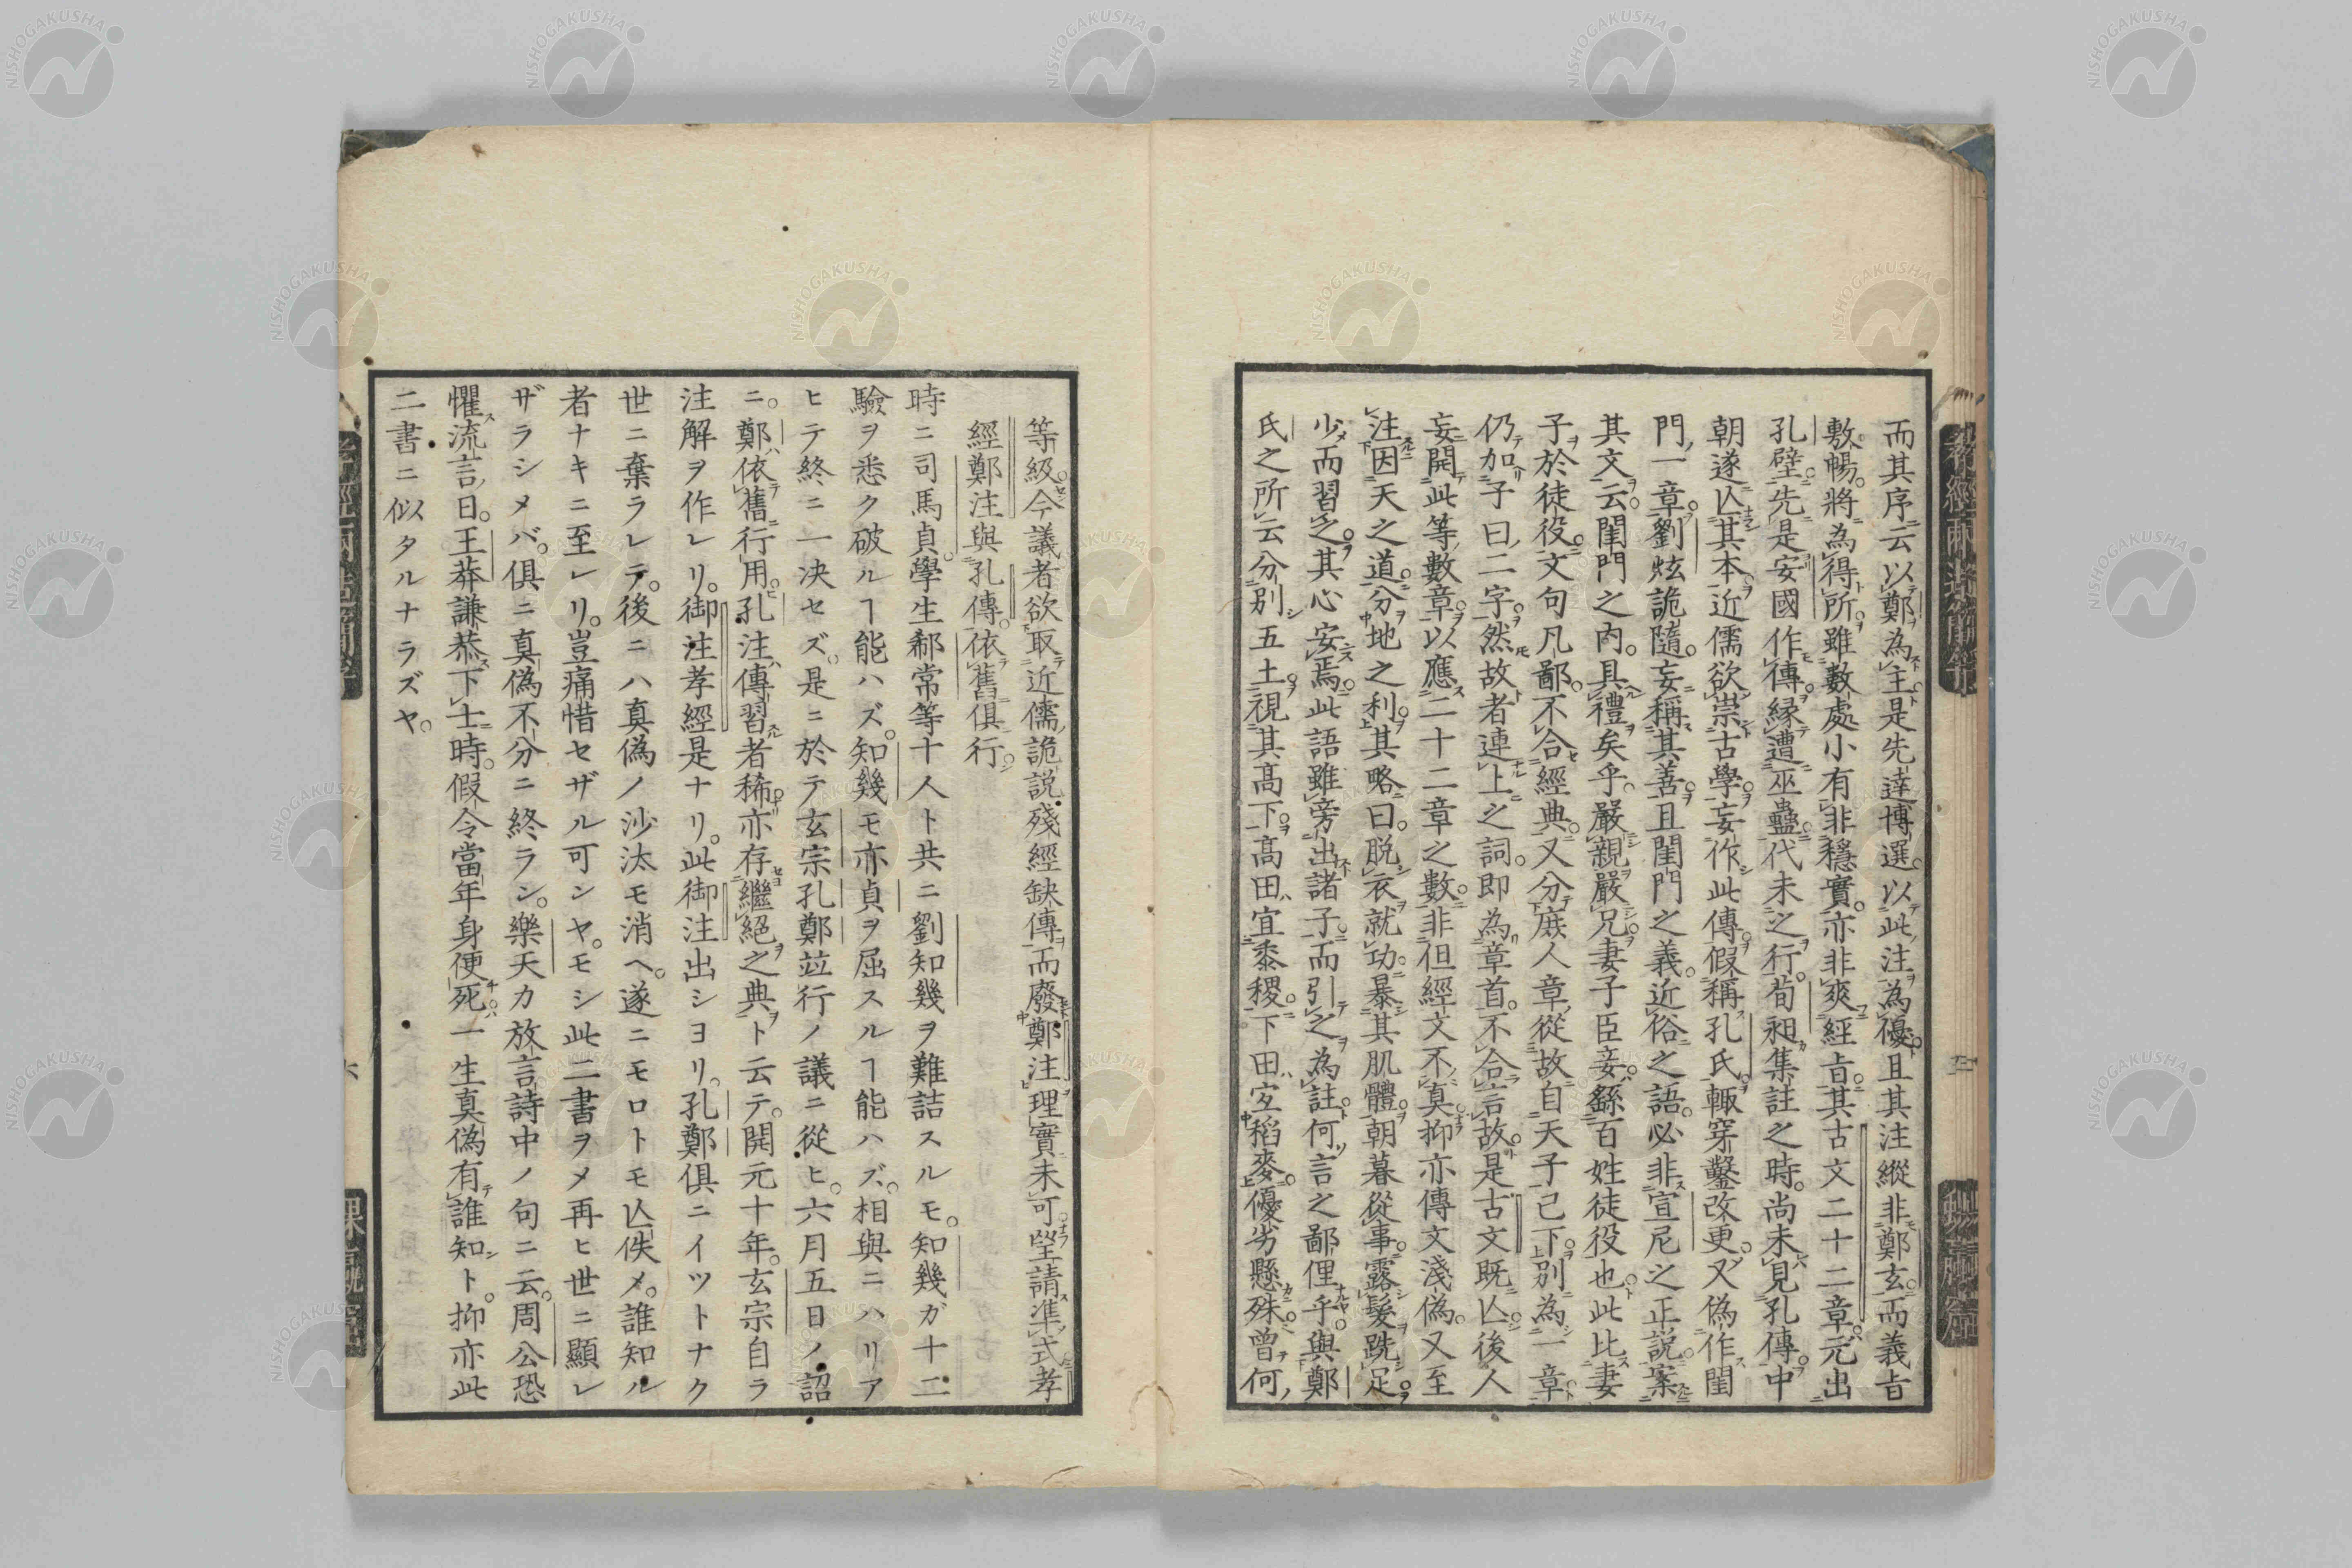 而其序云以鄭為主是先達博選以此注為優且其注縱非鄭玄而義旨
敷暢將為得所雖數處小有非穩實亦非爽經旨其古文二十二章元出
孔壁先是安國作傳緣遭巫蠱代未之行荀昶集註之時尚未見孔傳中
朝遂亾其本近儒欲崇古學妄作此傳假稱孔氏輙穿鑿改更又偽作閨
門一章劉炫詭隨妄稱其善且閨門之義近俗之語必非宣尼之正說案
其文云閨門之內具禮矣乎嚴親嚴兄妻子臣妾繇百姓徒役也此比妻
子於徒役文句凡鄙不合經典又分庶人章從故自天子已下別為一章
仍加子曰二字然故者連上之詞即為章首不合言故是古文既亾後人
妄開此等數章以應二十二章之數非但經文不真抑亦傳文淺偽又至
注因天之道分地之利其略曰脫衣就功暴其肌體朝暮從事露髮跣足
少而習之其心安焉此語雖旁出諸子而引之為註何言之鄙俚乎與鄭
氏之所云分別五土視其高下高田宜黍稷下田宜稻麥優劣懸殊曾何
等級今議者欲取近儒詭說殘經缺傳而廢鄭注理實未可望請準式孝
經鄭注與孔傳依舊俱行
時ニ司馬貞學生郗常等十人ト共ニ劉知幾ヲ難詰スルモ知幾ガ十二
驗ヲ悉ク破ルヿ能ハズ知幾モ亦貞ヲ屈スルヿ能ハズ相與ニハリア
ヒテ終ニ一決セズ是ニ於テ玄宗孔鄭竝行ノ議ニ從ヒ六月五日ノ詔
ニ鄭依舊行用孔注傳習者稀亦存繼絕之典ト云テ開元十年玄宗自ラ
注解ヲ作レリ御注孝經是ナリ此御注出シヨリ孔鄭俱ニイツトナク
世ニ棄ラレテ後ニハ真偽ノ沙汰モ消ヘ遂ニモロトモ亾佚メ誰知ル
者ナキニ至レリ豈痛惜セザル可シヤモシ此二書ヲメ再ヒ世ニ顯レ
ザラシメバ俱ニ真偽不分ニ終ラン樂天カ放言詩中ノ句ニ云周公恐
懼流言日王莽謙恭下士時假令當年身便死一生真偽有誰知ト抑亦此
二書ニ似タルナラズヤ
六